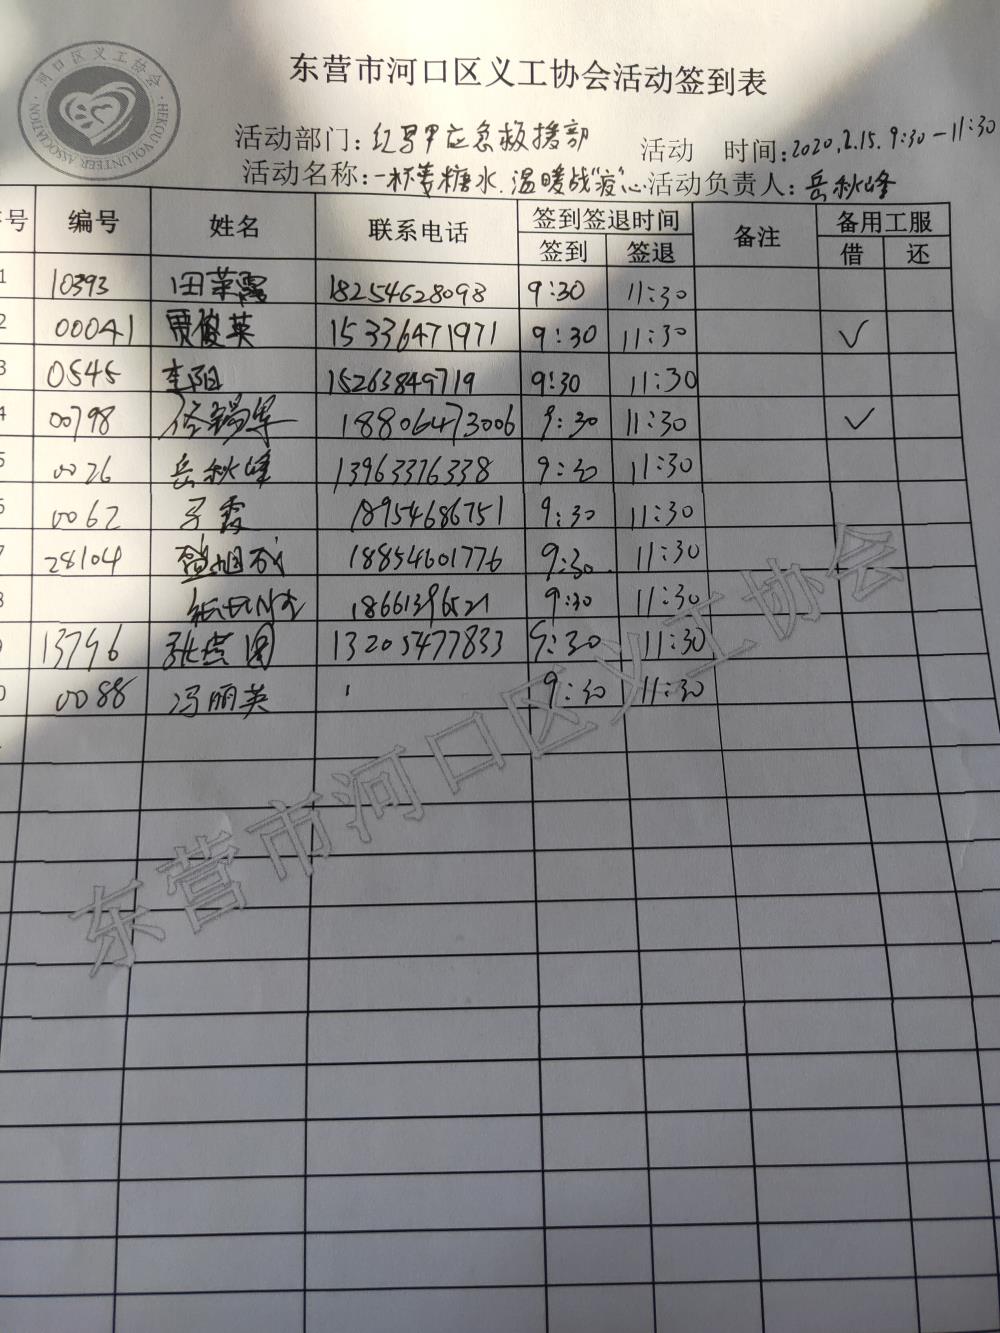 东营市河口区义工协会活动签到表
河口区义工协会
HEKOU VOLUNTEER ASSOCIATION
活动部门: 红马甲应急救援部 活动 时间: 2020.2.15. 9:30-11:30
活动名称: 一杯姜糖水.温暖战"疫"心 活动负责人: 岳秋峰
号 编号 姓名 联系电话 签到签退时间 备注 备用工服
签到 签退 借 还
1 10393 田苹霞 18254628098 9:30 11:30
2 00041 贾俊英 15336471971 9:30 11:30 ✓
3 0545 李阳 15263849719 9:30 11:30
4 00798 任锡军 18806473006 9:30 11:30 ✓
5 0026 岳秋峰 13963376338 9:30 11:30
6 0062 于霞 18954686751 9:30 11:30
7 28104 18854601776 9:30 11:30
8 18661396521 9:30 11:30
13796 张 13205477833 9:30 11:30
0 0088 冯丽英 9:30 11:30
东营市河口区义工协会